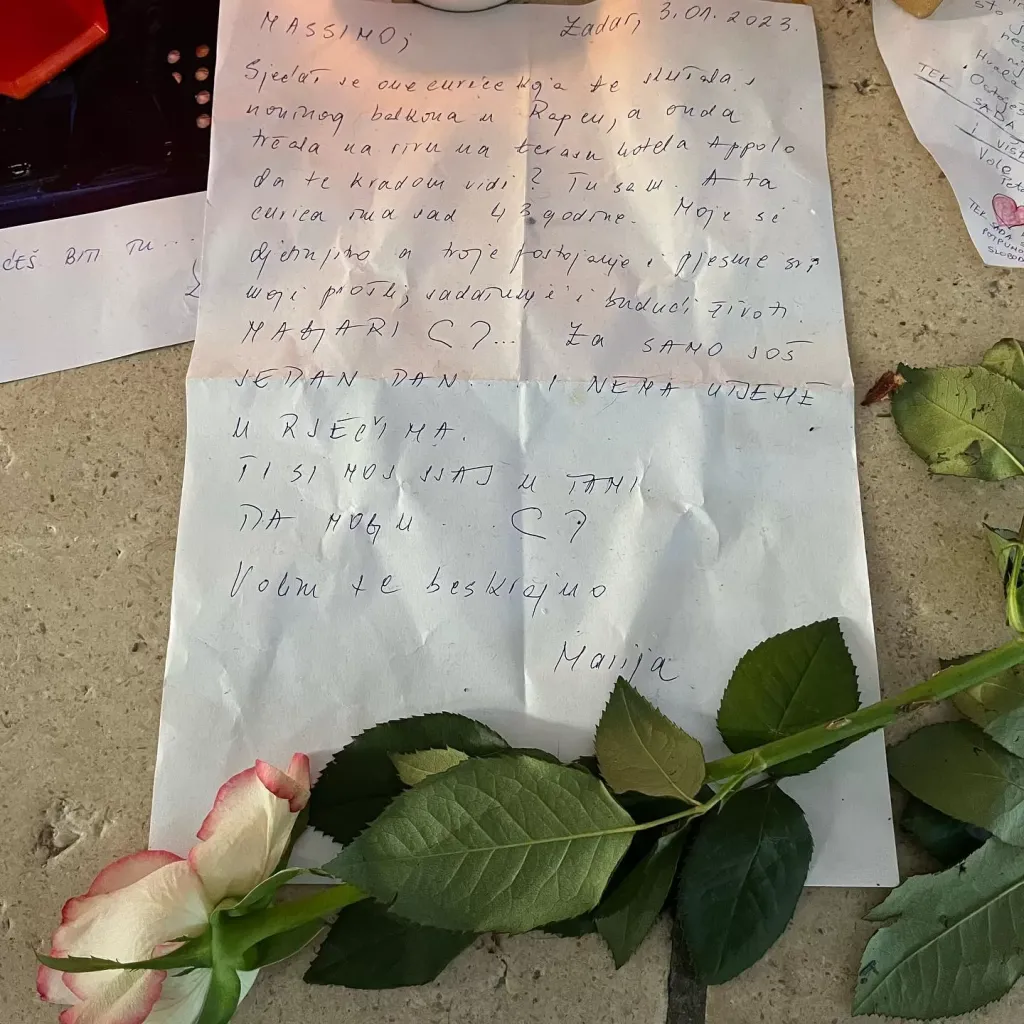 MASSIMO,
Zadar, 3.01.2023.
Sjećaš se one curice koja te slušala s
noninog balkona u Rapcu, a onda
trčala na rivu na terasu hotela Appolo
da te kradom vidi? Tu sam. A ta
curica ima sad 43 godine. Moje si
djetinjstvo a tvoje postojanje i pjesme svi
moji prošli, sadašnji i budući životi.
MAGARI (?)... Za SAMO JOŠ
JEDAN DAN... I NEMA UTJEHE
U RJEČIMA.
TI SI MOJ SJAJ U TAMI.
DA MOGU ... (?)
Volim te beskrajno
Marija
ĆEŠ BITI TU...
što
TEK
SADA
i
Volo
TEK SADA
POTPUNO